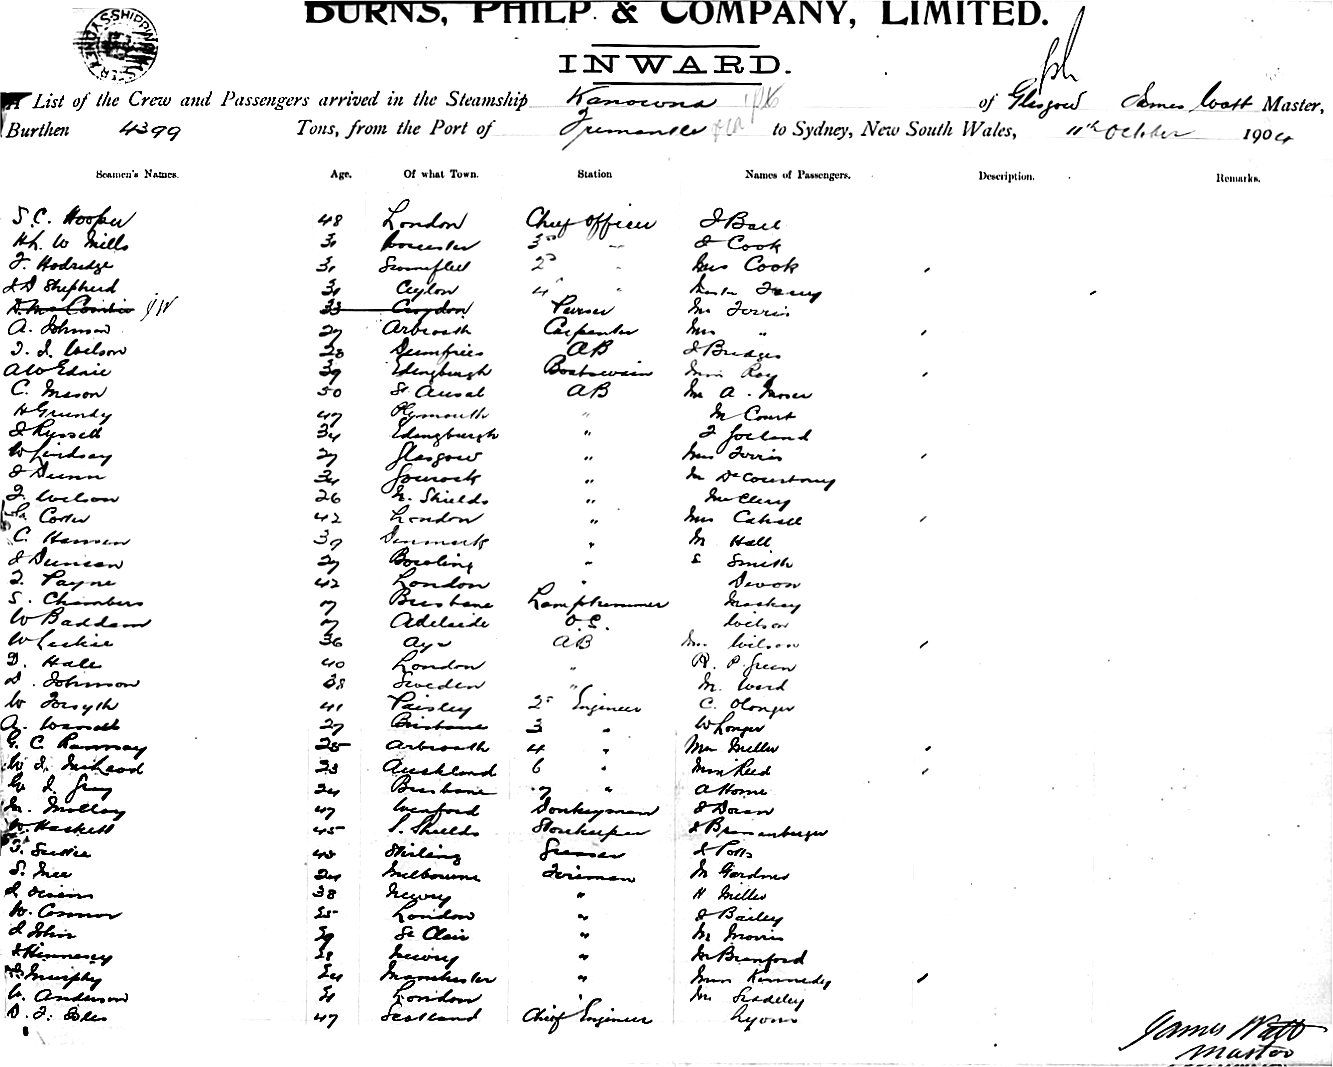 BURNS, PHILP & COMPANY, LIMITED.
INWARD.
A List of the Crew and Passengers arrived in the Steamship Kanowna of Glasgow James Watt Master,
Burthen 4399 Tons, from the Port of Fremantle to Sydney, New South Wales, 11th October 1904
Seamen's Names. Age. Of what Town. Station Names of Passengers. Description. Remarks.
S. C. Hooper 48 London Chief Officer J Ball
W Mills 31 Worcester 3rd " J Cook
F. Hodridge 31 2nd " Mrs Cook
J D Shepherd 31 Ceylon 4th "
33 Croydon Purser Mr Ferris
A. Johnson 27 Arbroath Carpenter Mrs "
T. J. Wilson 28 Dumfries AB J Bridges
A W Ednie 39 Edingburgh Boatswain Miss Roy
C. Meson 50 St Ausal AB Mr A. Moser
H Grundy 47 Plymouth " M Court
J Russell 34 Edingburgh "
W Lindsay 27 Glasgow " Mrs Ferris
J Dunn 34 Gourock " M DeCourtenay
F. Wilson 26 N. Shields " McClery
Coster 42 London " Mrs Cahill
C. Hansen 37 Denmark " M Hall
J Duncan 27 Bowling " S Smith
F. Payne 42 London " Devon
S. Chambers 17 Brisbane Lamptrimmer Mackay
W Baddam 17 Adelaide O.S. Wilson
W Leckie 36 Ayr AB Mrs Wilson
D. Hale 40 London " R. P. Green
D. Johnson 38 Sweden " M. Ward
W Forsyth 41 Paisley 2nd Engineer C. Olonger
A. 27 Brisbane 3 " W Longer
G. C. Ramsay 25 Arbroath 4 " Mrs Miller
W J. McLeod 23 Auckland 6 " Miss Reed
W J. Guy 24 Brisbane 7 " A Horne
M. Molloy 47 Wexford Donkeyman J Doran
W. Haskett 45 S. Shields Storekeeper J Bramenberger
T. 43 Stirling Greaser J Potts
S. Mee 24 Melbourne Fireman M Gardner
38 Newry " H Miller
W. Connor 25 London " J Bailey
J John 29 St Clair " M Morris
J Hennessy 28 Newry " M Branford
Murphy 24 Manchester " Miss Kennedy
Anderson 21 London " M
D. F. 47 Scotland Chief Engineer Lyons
James Watt
Master